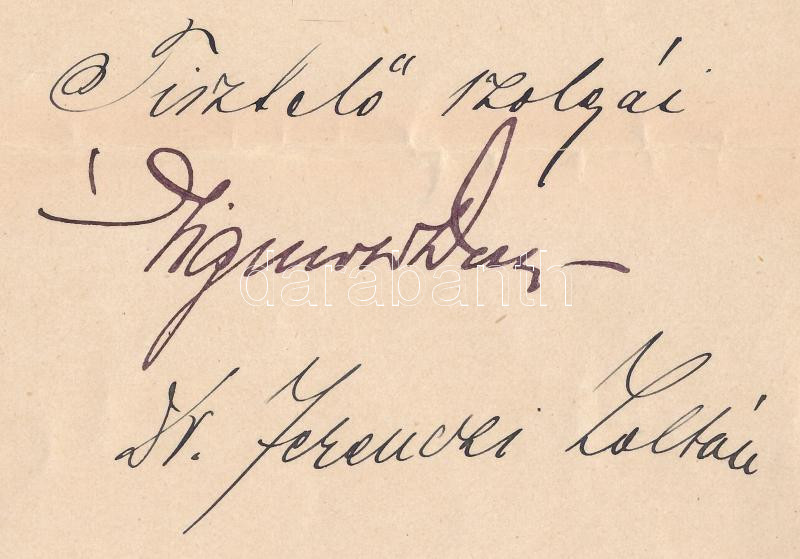 Tisztelő szolgái
darabanth
Dr. Ferenczi Zoltán